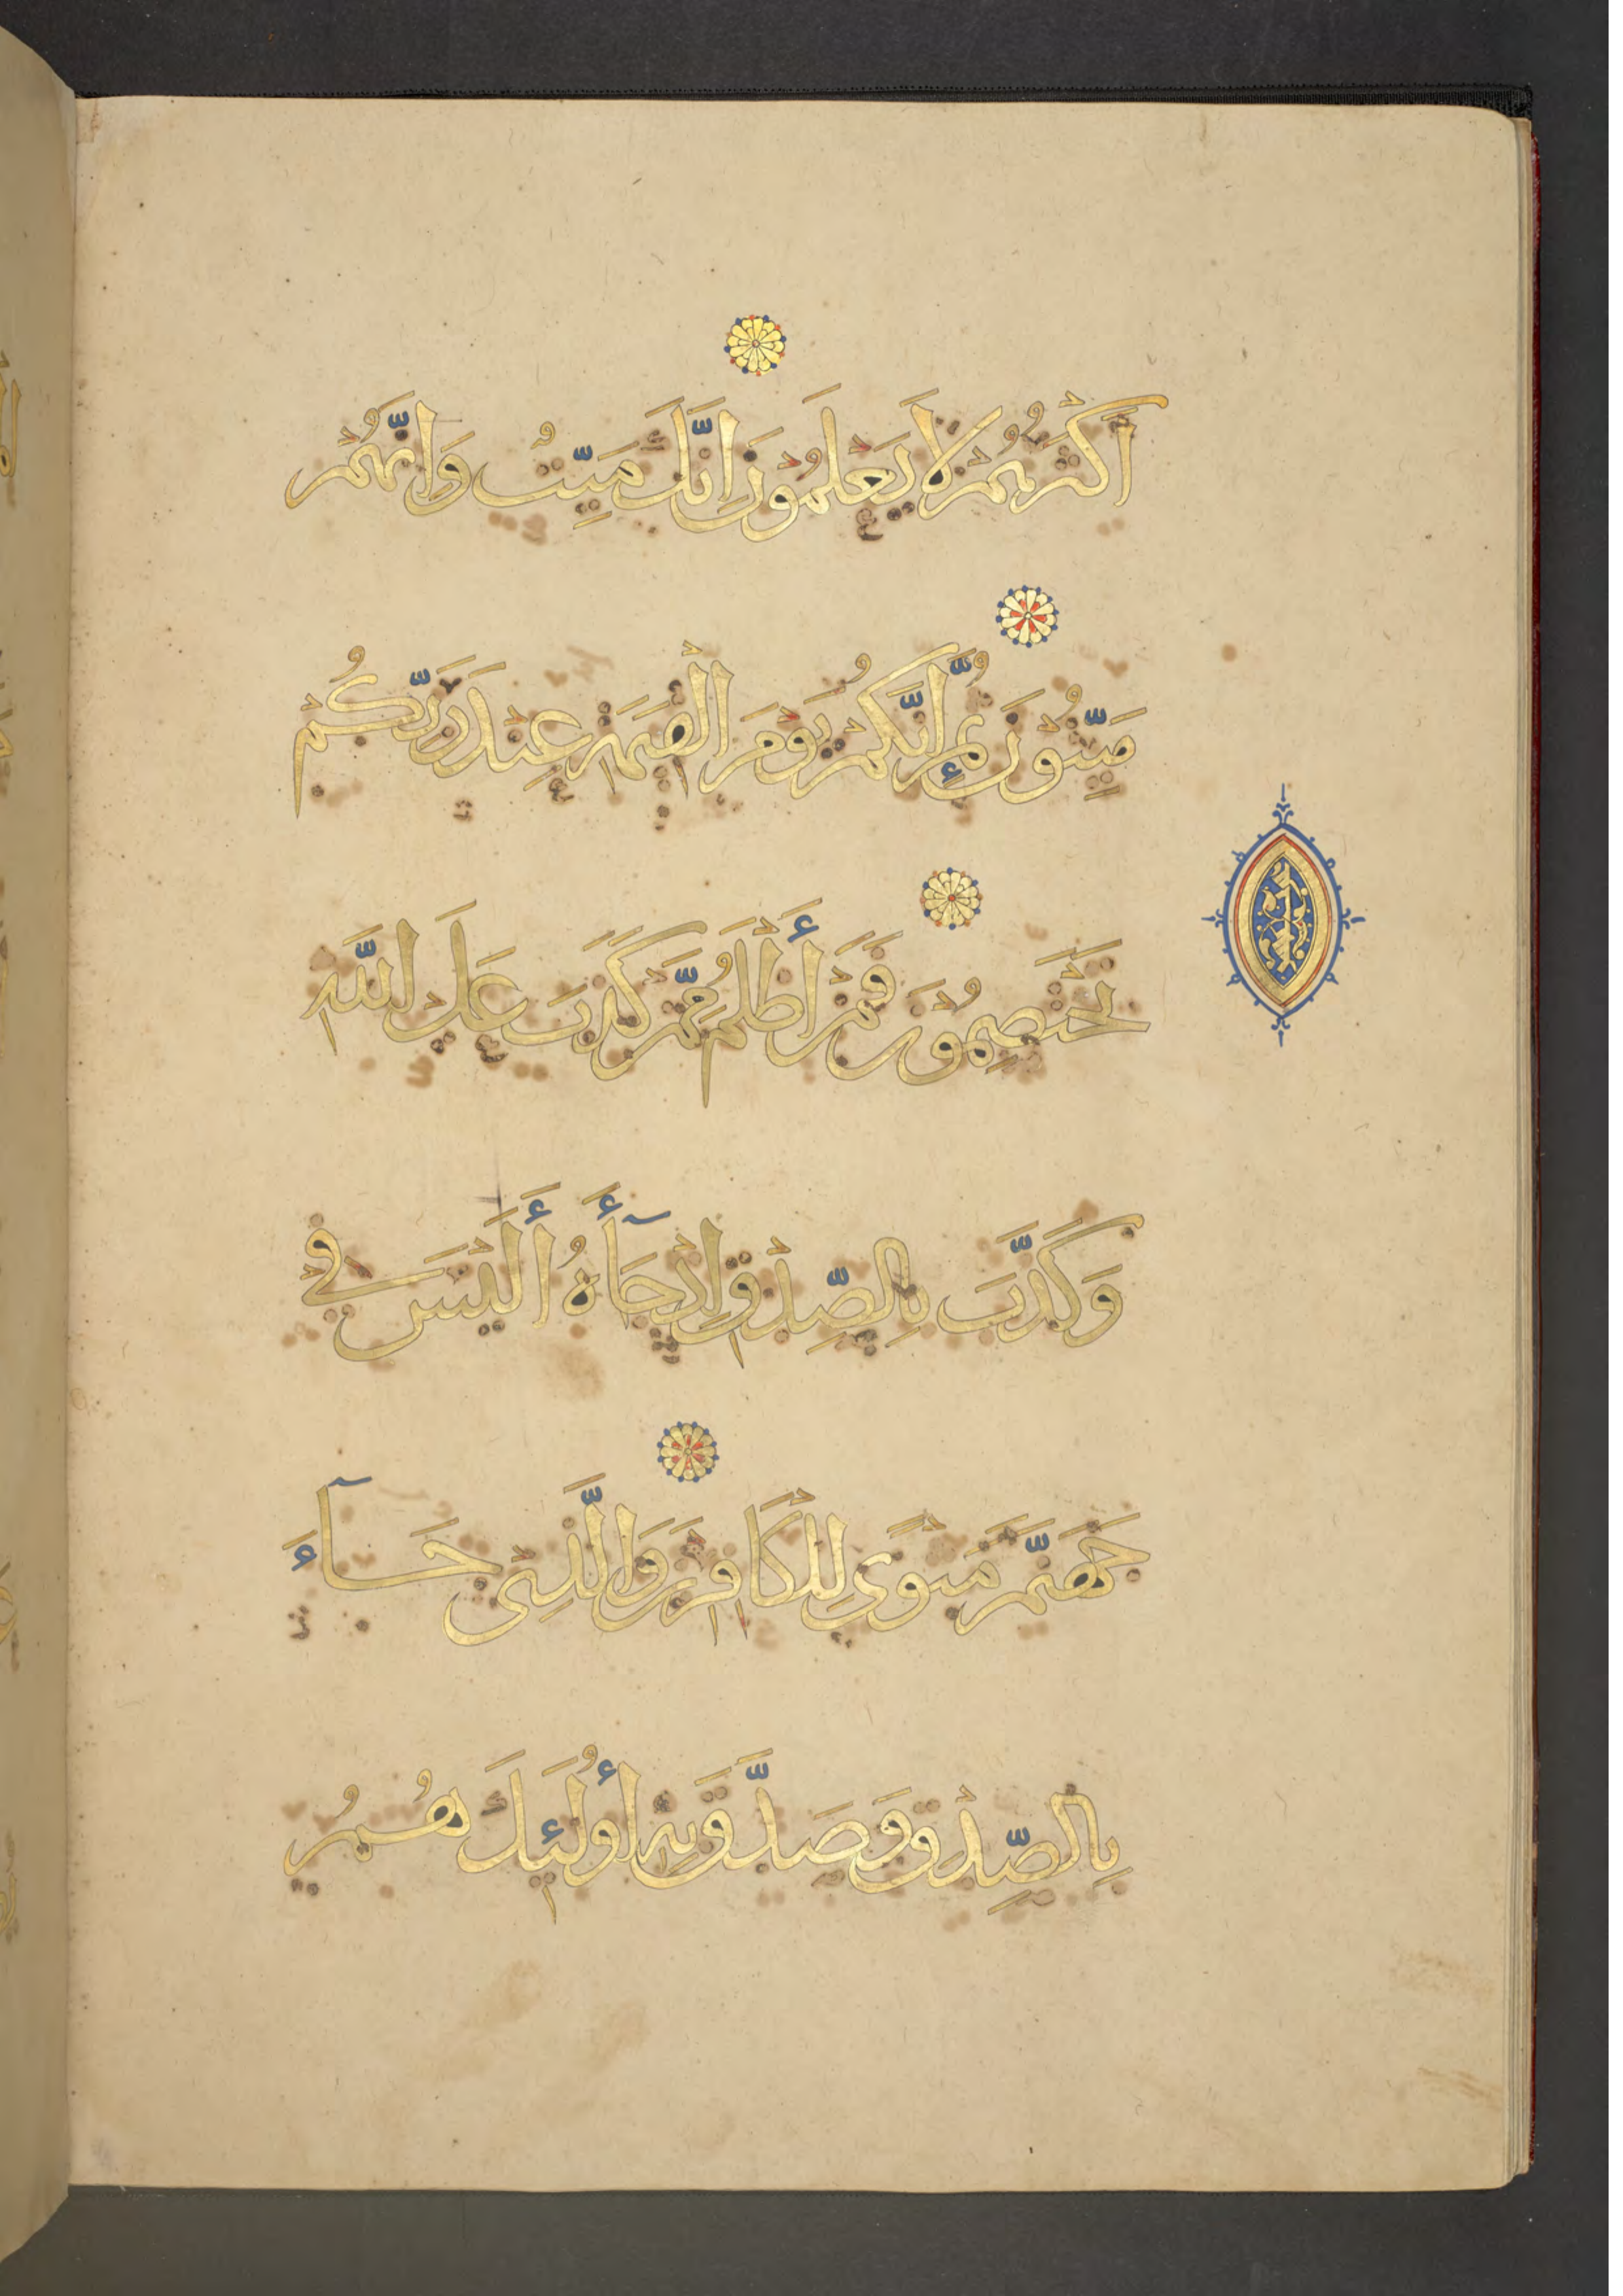 أَكْثَرُهُمْ لَا يَعْلَمُونَ إِنَّكَ مَيِّتٌ وَإِنَّهُمْ
مَيِّتُونَ ثُمَّ إِنَّكُمْ يَوْمَ الْقِيَٰمَةِ عِنْدَ رَبِّكُمْ
تَخْتَصِمُونَ فَمَنْ أَظْلَمُ مِمَّنْ كَذَبَ عَلَى اللَّهِ
وَكَذَّبَ بِالصِّدْقِ إِذْ جَآءَهُ أَلَيْسَ فِي
جَهَنَّمَ مَثْوًى لِلْكَافِرِينَ وَالَّذِي جَآءَ
بِالصِّدْقِ وَصَدَّقَ بِهِ أُولَٰئِكَ هُمُ